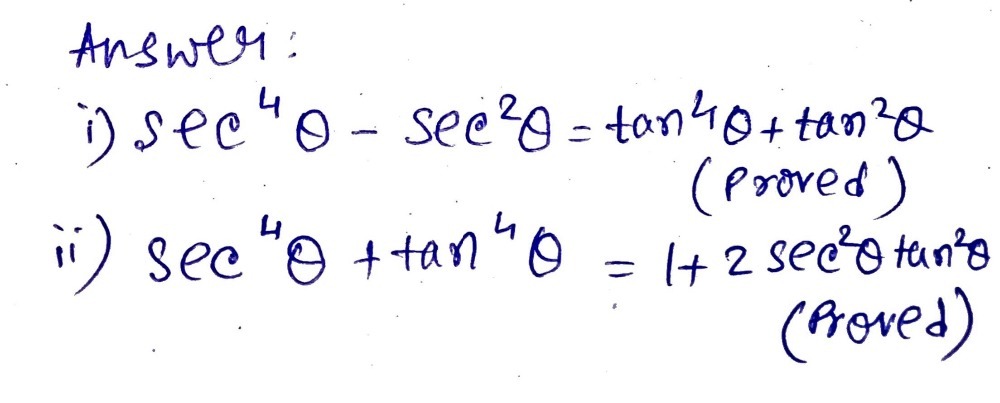 Answer:
i) sec⁴θ - sec²θ = tan⁴θ + tan²θ
(Proved)
ii) sec⁴θ + tan⁴θ = 1+ 2 sec²θ tan²θ
(Proved)